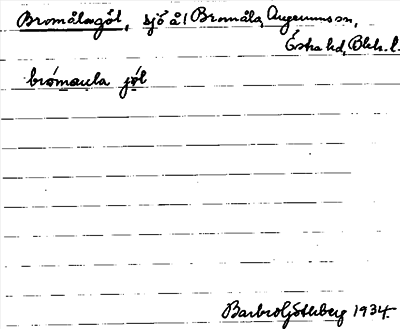 Bromålagöl, sjö å l Bromåla, Augerums sn,
Östra hd, Blek. l.
brómaula jöl
Barbro Götlberg 1934.